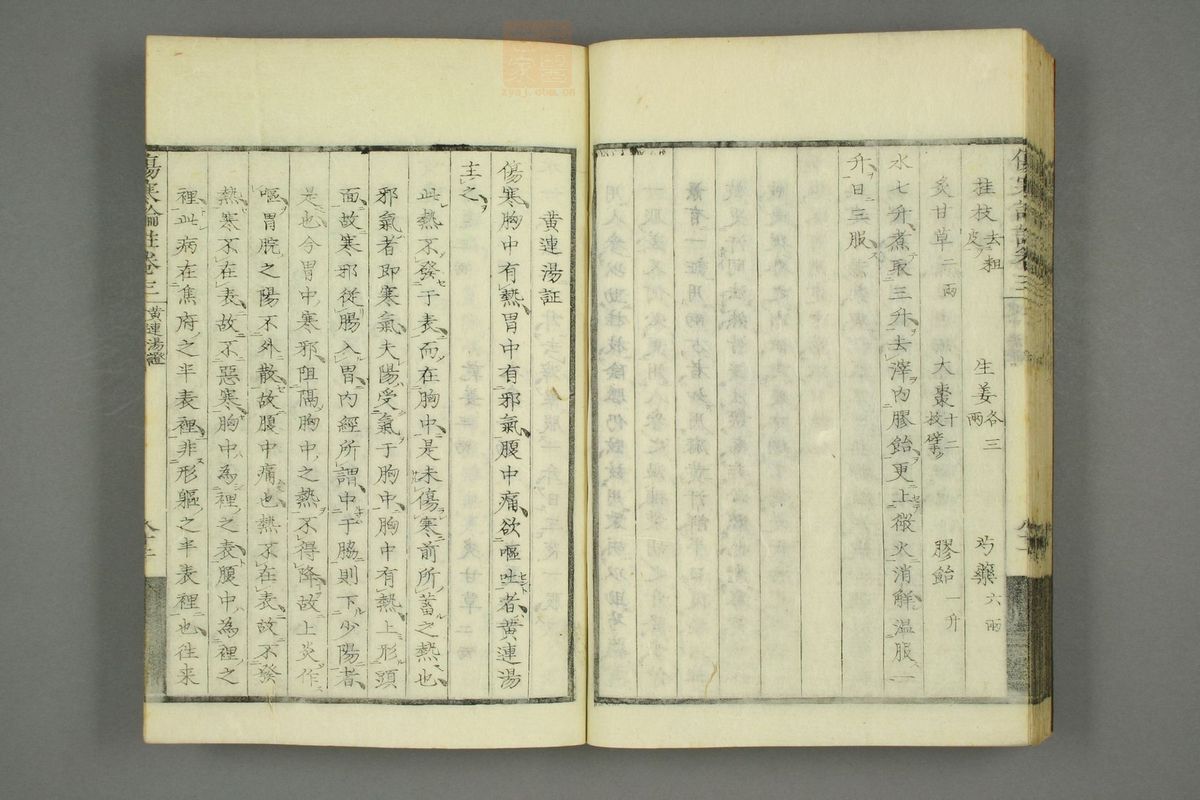 桂枝去粗皮 生姜各三兩 芍藥六兩
炙甘草二兩 大棗十二枚擘 膠飴一升
水七升煮取三升去滓內膠飴更上微火消解温服一
升日三服
黃連湯証
傷寒胸中有熱胃中有邪氣腹中痛欲嘔吐者黃連湯
主之
此熱不發于表而在胸中是未傷寒前所蓄之熱也
邪氣者即寒氣夫陽受氣于胸中胸中有熱上形頭
面故寒邪從腸入胃內經所謂中于脇則下少陽者
是也今胃中寒邪阻隔胸中之熱不得降故上炎作
嘔胃脘之陽不外散故腹中痛也熱不在表故不發
熱寒不在表故不惡寒胸中為裡之表腹中為裡之
裡此病在焦府之半表裡非形軀之半表裡也往来
傷寒論註卷三 黃連湯證
zysj.com.cn